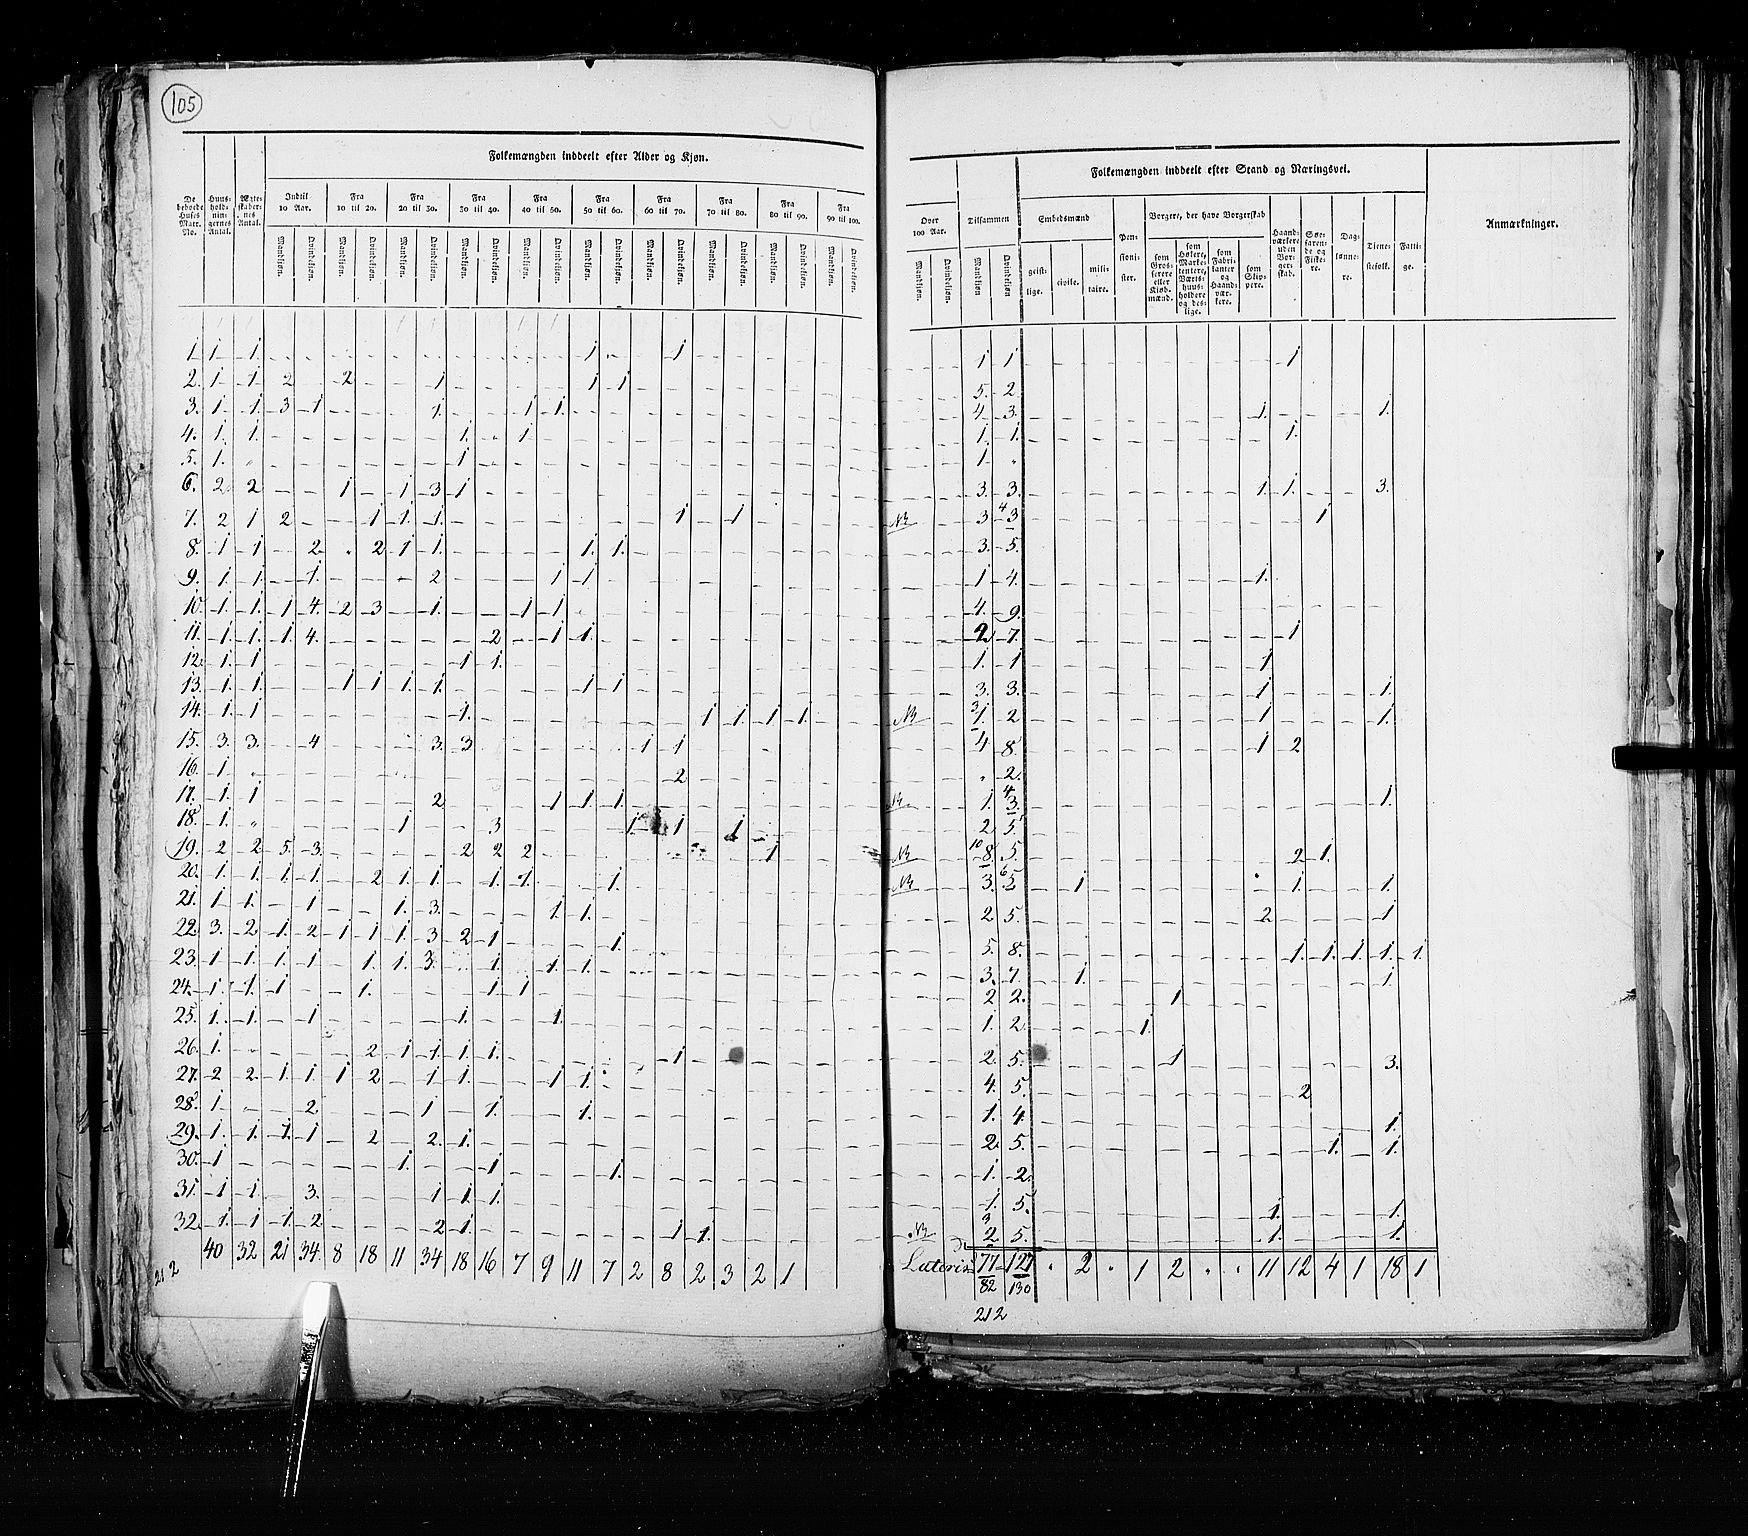 105
Folkemængden inddeelt efter Alder og Kjøn.
De beboede Huses Matr. No.
Huus-hold-nin-gernes Antal.
Ægte-skaber-nes Antal.
Indtil 10 Aar. Fra 10 til 20. Fra 20 til 30. Fra 30 til 40. Fra 40 til 50. Fra 50 til 60. Fra 60 til 70. Fra 70 til 80. Fra 80 til 90. Fra 90 til 100.
Mandkjøn. Qvindekjøn. Mandkjøn. Qvindekjøn. Mandkjøn. Qvindekjøn. Mandkjøn. Qvindekjøn. Mandkjøn. Qvindekjøn. Mandkjøn. Qvindekjøn. Mandkjøn. Qvindekjøn. Mandkjøn. Qvindekjøn. Mandkjøn. Qvindekjøn. Mandkjøn. Qvindekjøn.
1 1 1 1 1
2. 1 1 2 2 1 1 1
3. 1 1. 3 1 1. 1 1.
4. 1. 1. 1. 1
5. 1. 1
6. 2 2 1 1 3 1
7. 2 1 2 1 1. 1. 1 1
8. 1 1 2 2 1 1. 1. 1.
9. 1. 1. 1. 2 1 1
10. 1. 1. 1 4. 2 3 1. 1 1
11. 1. 1. 1 4. 2 1 1.
12. 1. 1 1 1.
13. 1. 1. 1 1 1. 1. 1 1
14. 1. 1 1. 1 1. 1 1.
15. 3. 3. 4 3. 3 1 1
16. 1 2
17. 1 1 2 1 1 1.
18. 1. 1 3 1 1 1
19. 2 2 5. 3. 2 2 2 1
20. 1. 1. 1. 1. 2 1. 1. 1. 1. 1.
21. 1 1. 1 1. 3. 1. 1.
22. 3. 2 1. 2 1 1 1. 3 2 1 1.
23. 1 1. 1. 1 1. 1. 3. 1. 1. 1.
24. 1. 1. 1 1. 1 1
25. 1. 1. 1 1. 1.
26. 1. 2 1 1. 1. 1. 1
27. 2 2 1. 1. 1 2 1 1. 1 1.
28. 1 2 1 1. 1.
29. 1. 1. 1. 1 2 2. 1.
30. 1 1. 1 1.
31. 1 1 3. 1 1. 1.
32. 1. 1 1 2 2 1. 1 1.
40 32 21 34. 8 18 11 34 18 16 7 9 11 7 2 8 2 3 2 1
212
Folkemængden inddeelt efter Stand og Næringsvei.
Over 100 Aar.
Tilsammen
Embedsmænd
Pen-sioni-ster.
Borgere, der have Borgerskab
Haand-værkere uden Bor-ger-skab.
Søe-faren-de og Fiske-re.
Dag-lønne-re.
Tiene-stefolk.
Fatti-ge.
Anmærkninger.
Mandkjøn. Qvindekjøn. Mandkjøn Qvindekjøn.
geist-lige. civile. mili-taire.
som Gros-serere eller Kjøb-mænd.
som Høkere, Marke-tentere, Værts-huus-holdere og des-lige.
som Fabri-kanter og Haand-vær-kere.
som Skip-pere.
1 1 1
5. 2
4 3. 1. 1.
1. 1. 1.
1
3. 3. 1 1. 3.
NB 3 4 3 1
3. 5.
1 4. 1.
4. 9.
2 7. 1
1. 1 1
3. 3. 1 1.
NB 3 1. 2 1 1.
4 8. 1 2
2.
NB 1. 4 3. 1.
2 5.
NB 10 8. 5. 2 1.
NB 3. 6 5 1 1. 1.
2 5. 2 1
5. 8. 1. 1. 1 1. 1.
3. 7. 1. 1
2 2. 1
1. 2 1.
2. 5. 1 3.
4. 5. 2
1. 4. 1.
2. 5. 1. 1.
1. 2.
1. 5. 1. 1.
NB 3 2 5. 1. 1.
Lateris 77 127 2 1 2 11 12 4 1 18 1
82 130
212